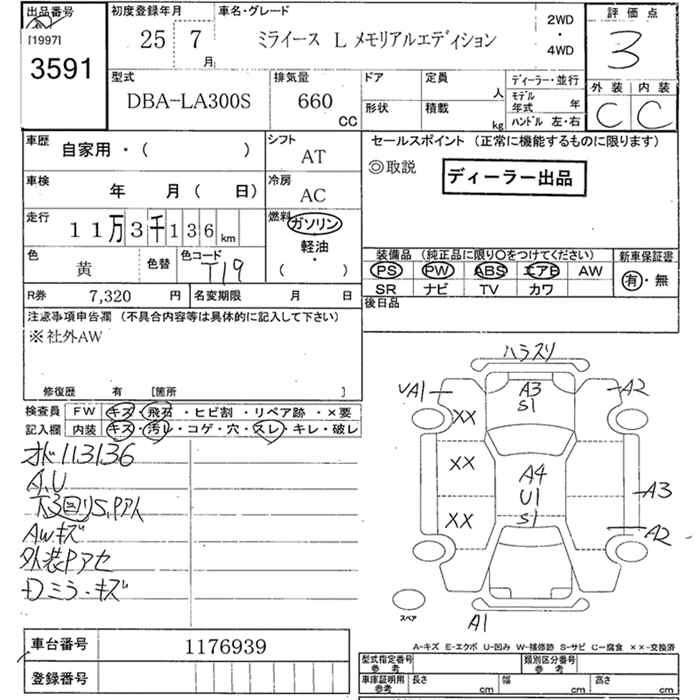 出品番号 初度登録年月 車名・グレード 2WD 評価点
[1997] 25 7 月 ミライース L メモリアルエディション ・ 3
3591 4WD
型式 排気量 ドア 定員 人 ディーラー・並行 外装 内装
DBA-LA300S 660 CC 形状 積載 kg モデル年式 年 C C
ハンドル 左・右
車歴 自家用・( ) シフト AT セールスポイント (正常に機能するものに限ります)
◎取説 ディーラー出品
車検 年 月 ( 日) 冷房 AC
走行 11万3千136 km 燃料 ガソリン
軽油・
( )
色 黄 色替 色コード T19
装備品 (純正品に限り○をつけてください) 新車保証書
PS PW ABS エアB AW 有・無
SR ナビ TV カワ
R券 7,320 円 名変期限 月 日 後日品
注意事項申告欄 (不具合内容等は具体的に記入して下さい)
※社外AW
修復歴 有 [箇所 ]
検査員 FW キズ・飛石・ヒビ割・リペア跡・×要
記入欄 内装 キズ・汚レ・コゲ・穴・スレ・キレ・破レ
オド113136
A,U
下3回りS,Pアト
AWキズ
外装Pアセ
Dミラーキズ
ハラスリ
A1 A3 A2
S1
XX
XX A4
U1 A3
XX S1 A2
スペア
A1
A-キズ E-エクボ U-凹み W-補修跡 S-サビ C-腐食 ××-交換済
車台番号 1176939
登録番号
型式指定番号 参考 類別区分番号 参考
車庫証明用 参考 長さ cm 幅 cm 高さ cm